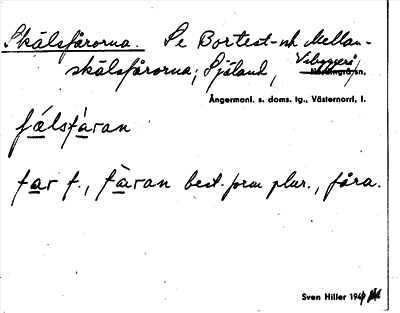 Skälsfårorna. Se Bortest- och Mellan-
skälsfårorna, Själand, Vibyggerå sn.
Ångermanl. s. doms. tg., Västernorrl. l.
fǽlsfàran
far f., fàran best. form plur., fåra.
Sven Hiller 194